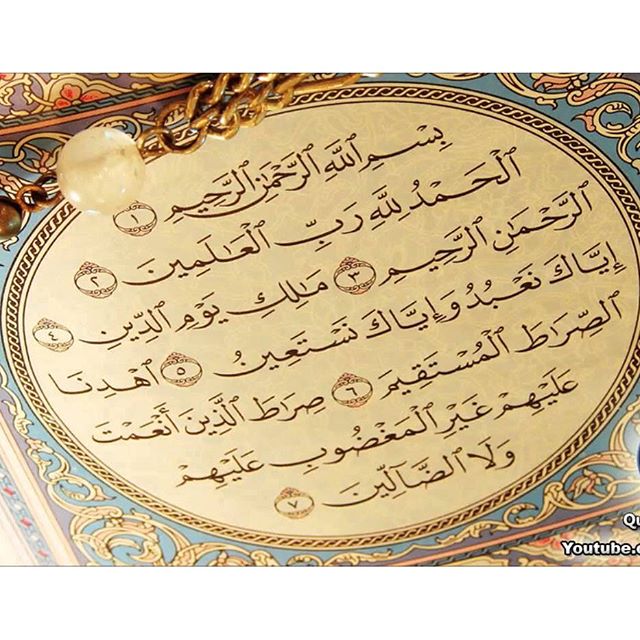 بِسْمِ ٱللَّهِ ٱلرَّحْمَٰنِ ٱلرَّحِيمِ ١
ٱلْحَمْدُ لِلَّهِ رَبِّ ٱلْعَٰلَمِينَ ٢
ٱلرَّحْمَٰنِ ٱلرَّحِيمِ ٣ مَٰلِكِ يَوْمِ ٱلدِّينِ ٤
إِيَّاكَ نَعْبُدُ وَإِيَّاكَ نَسْتَعِينُ ٥ ٱهْدِنَا
ٱلصِّرَٰطَ ٱلْمُسْتَقِيمَ ٦ صِرَٰطَ ٱلَّذِينَ أَنْعَمْتَ
عَلَيْهِمْ غَيْرِ ٱلْمَغْضُوبِ عَلَيْهِمْ
وَلَا ٱلضَّآلِّينَ ٧
Youtube.c